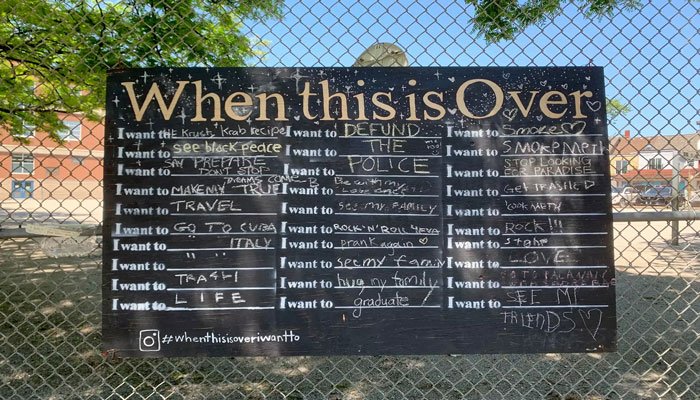 When this is Over
I want the Krusty Krab recipe
I want to see black peace
I want to SAY PREPARE DON'T STOP
I want to MAKE MY DREAMS COME TRUE
I want to TRAVEL
I want to GO TO CUBA
I want to " " ITALY
I want to
I want to
I want to LIFE
I want to DEFUND
I want to THE
I want to POLICE
I want to Be with my
I want to see my FAMILY
I want to ROCK'N'ROLL 4EVA
I want to prank again
I want to see my family
I want to hug my family
I want to graduate
I want to Smoke
I want to SMOKE
I want to STOP LOOKING FOR PARADISE
I want to Get
I want to
I want to ROCK!!
I want to
I want to LOVE
I want to GO TO
I want to SEE MY
FRIENDS
#whenthisisoveriwantto